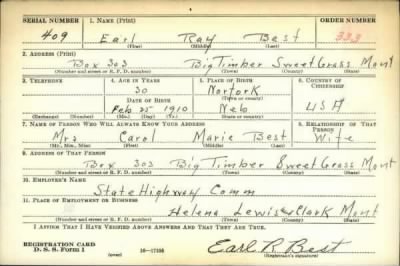 SERIAL NUMBER 1. NAME (Print) ORDER NUMBER
409 Earl Ray Best 333
(First) (Middle) (Last)
2. ADDRESS (Print)
Box 303 Big Timber Sweet Grass Mont
(Number and street or R. F. D. number) (Town) (County) (State)
3. TELEPHONE 4. AGE IN YEARS 5. PLACE OF BIRTH 6. COUNTRY OF CITIZENSHIP
30 Norfork
DATE OF BIRTH (Town or county)
Feb 25 1910 Neb USA
(Exchange) (Number) (Mo.) (Day) (Yr.) (State or country)
7. NAME OF PERSON WHO WILL ALWAYS KNOW YOUR ADDRESS 8. RELATIONSHIP OF THAT PERSON
Mrs Carol Marie Best Wife
(Mr., Mrs., Miss) (First) (Middle) (Last)
9. ADDRESS OF THAT PERSON
Box 303 Big Timber Sweet Grass Mont
(Number and street or R. F. D. number) (Town) (County) (State)
10. EMPLOYER'S NAME
State Highway Comm
11. PLACE OF EMPLOYMENT OR BUSINESS
Helena Lewis & Clark Mont
(Number and street or R. F. D. number) (Town) (County) (State)
I AFFIRM THAT I HAVE VERIFIED ABOVE ANSWERS AND THAT THEY ARE TRUE.
REGISTRATION CARD
D. S. S. Form 1 (over) 16—17105 Earl R Best
(Registrant's signature)